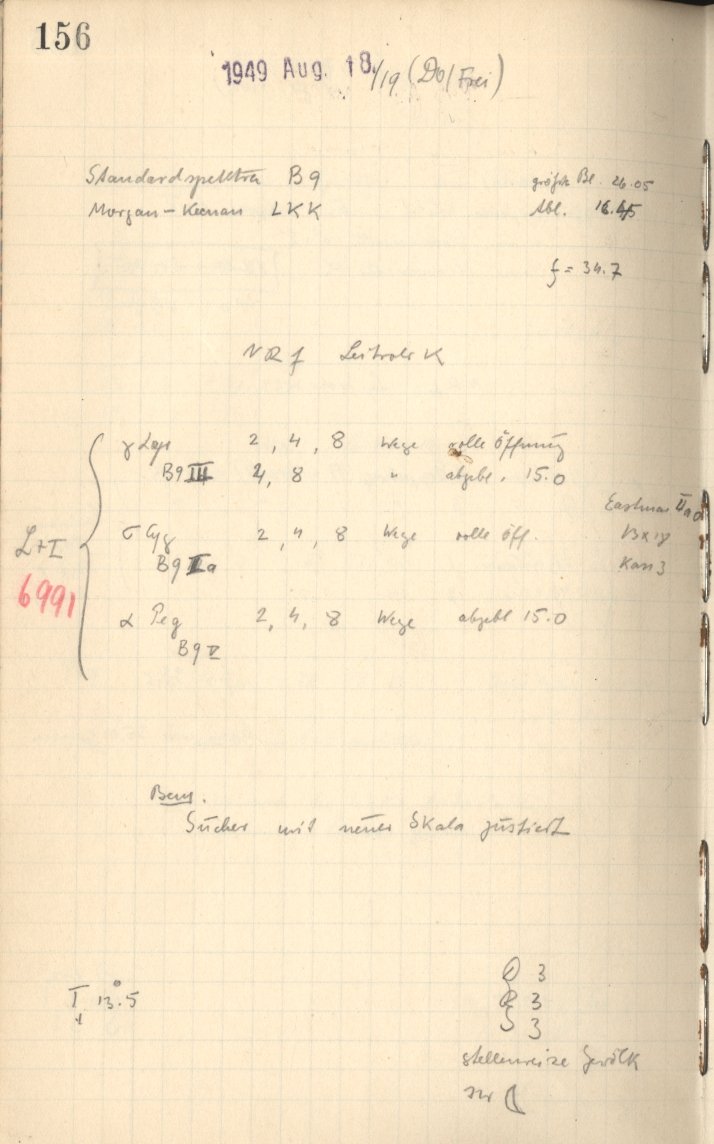 156
1949 Aug. 18./19 (Do/Frei)
Standardspektra B9
größte Bl. 26.05
Morgan-Keenan LKK
Abl. 16.45
f = 34.7
Leitrohr K
γ Lyr 2, 4, 8 Wege volle Öffnung
B9 III 4, 8 " abgebl. 15.0
Eastman IIaO
σ Cyg 2, 4, 8 Wege volle Öff.
B9 Ia
L+I
6991
α Peg 2, 4, 8 Wege abgebl 15.0
B9 V
Bem.
Sucher mit neuer Skala justiert
3
T 13°.5
3
3
stellenweise Gewölk